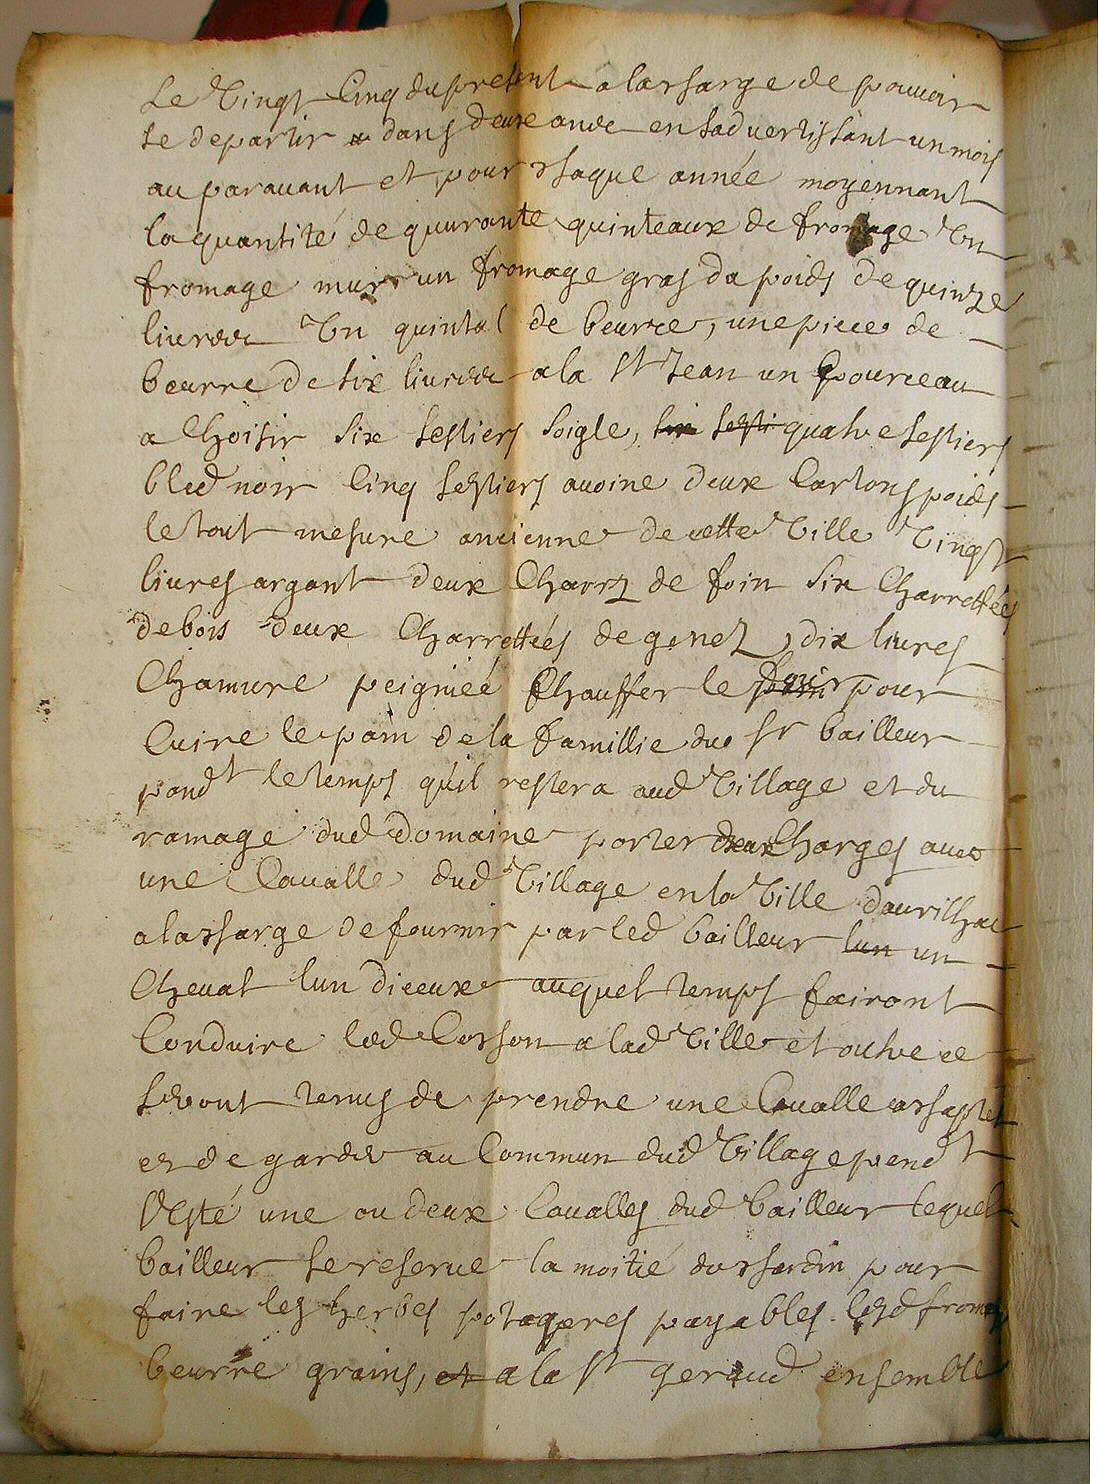 Le Vingt Cinq du present a la charge de pouvoir
se departir dans deux ans en sadvertissant un mois
au paravant et pour chaque année moyennant
la quantité de quarante quinteaux de fromage Un
fromage mur un fromage gras du poids de quinze
livres Un quintal de beurre, une piece de
beurre de six livres a la St Jean un pourceau
a Choisir six sestiers soigle, six sesti quatre sestiers
bled noir Cinq sestiers avoine deux Cartons poids
le tout mesure ancienne de cette Ville Vingt
livres argant deux Charz de foin six Charrettées
de bois deux Charrettées de genez, dix livres
Chamure peignéé Chauffer le four pour
Cuire le pain de la famillie du sr bailleur
pandt le temps qu'il restera aud Village et du
ramage dud Domaine porter deux Charges avec
une Cavalle dud Village en la Ville daurilhac
a la charge de fournir par led bailleur lun un
Cheval lun diceux auquel temps fairont
Conduire led Cosson a lad Ville et outre ce
seront tenus de prendre une Cavalle a chaptel
et de garder au Commun dud Village pendt
l'Esté une ou deux Cavalles dud bailleur lequel
bailleur se reserve la moitié du chardin pour
faire les herbes potageres payables lesd from
beurre grains, et a la St geraud ensemble